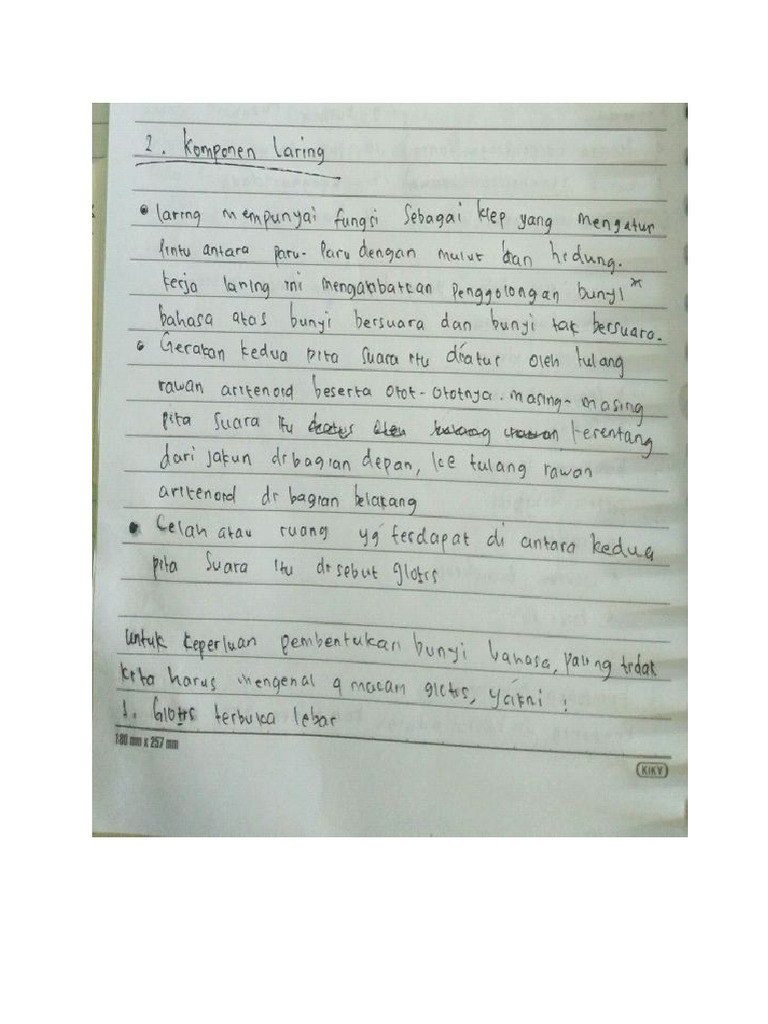 2. Komponen Laring
• laring mempunyai fungsi sebagai klep yang mengatur
Pintu antara paru-paru dengan mulut dan hidung.
kerja laring ini mengakibatkan penggolongan bunyi"
bahasa atas bunyi bersuara dan bunyi tak bersuara.
• Gerakan kedua pita suara itu diatur oleh tulang
rawan aritenoid beserta otot-ototnya. masing-masing
pita suara itu terentang
dari jakun di bagian depan, ke tulang rawan
aritenoid di bagian belakang
• Celah atau ruang yg terdapat di antara kedua
pita suara itu disebut glotis
untuk keperluan pembentukan bunyi bahasa, paling tidak
kita harus mengenal 4 macam glotis, yakni :
1. Glotis terbuka lebar
180 mm x 257 mm
KIKY